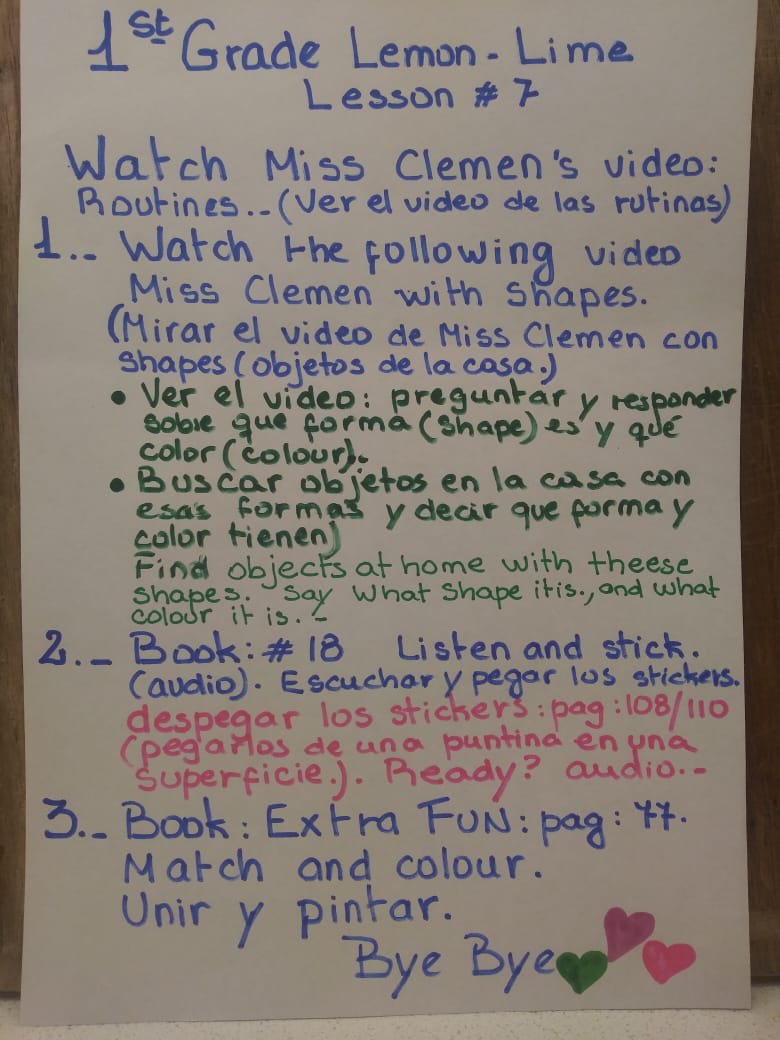 1st Grade Lemon - Lime
Lesson # 7
Watch Miss Clemen's video:
Routines.. (Ver el video de las rutinas)
1.- Watch the following video
Miss Clemen with shapes.
(Mirar el video de Miss Clemen con
shapes (objetos de la casa.)
• Ver el video: preguntar y responder
sobre que forma (shape) es y qué
color (colour).
• Buscar objetos en la casa con
esas formas y decir que forma y
color tienen)
Find objects at home with theese
shapes. Say what shape it is., and what
colour it is. -
2.- Book: # 18 Listen and stick.
(audio). Escuchar y pegar los stickers.
despegar los stickers: pag: 108/110
(pegarlos de una puntina en una
superficie.). Ready? audio.-
3.- Book: Extra FUN: pag: 77.
Match and colour.
Unir y pintar.
Bye Bye